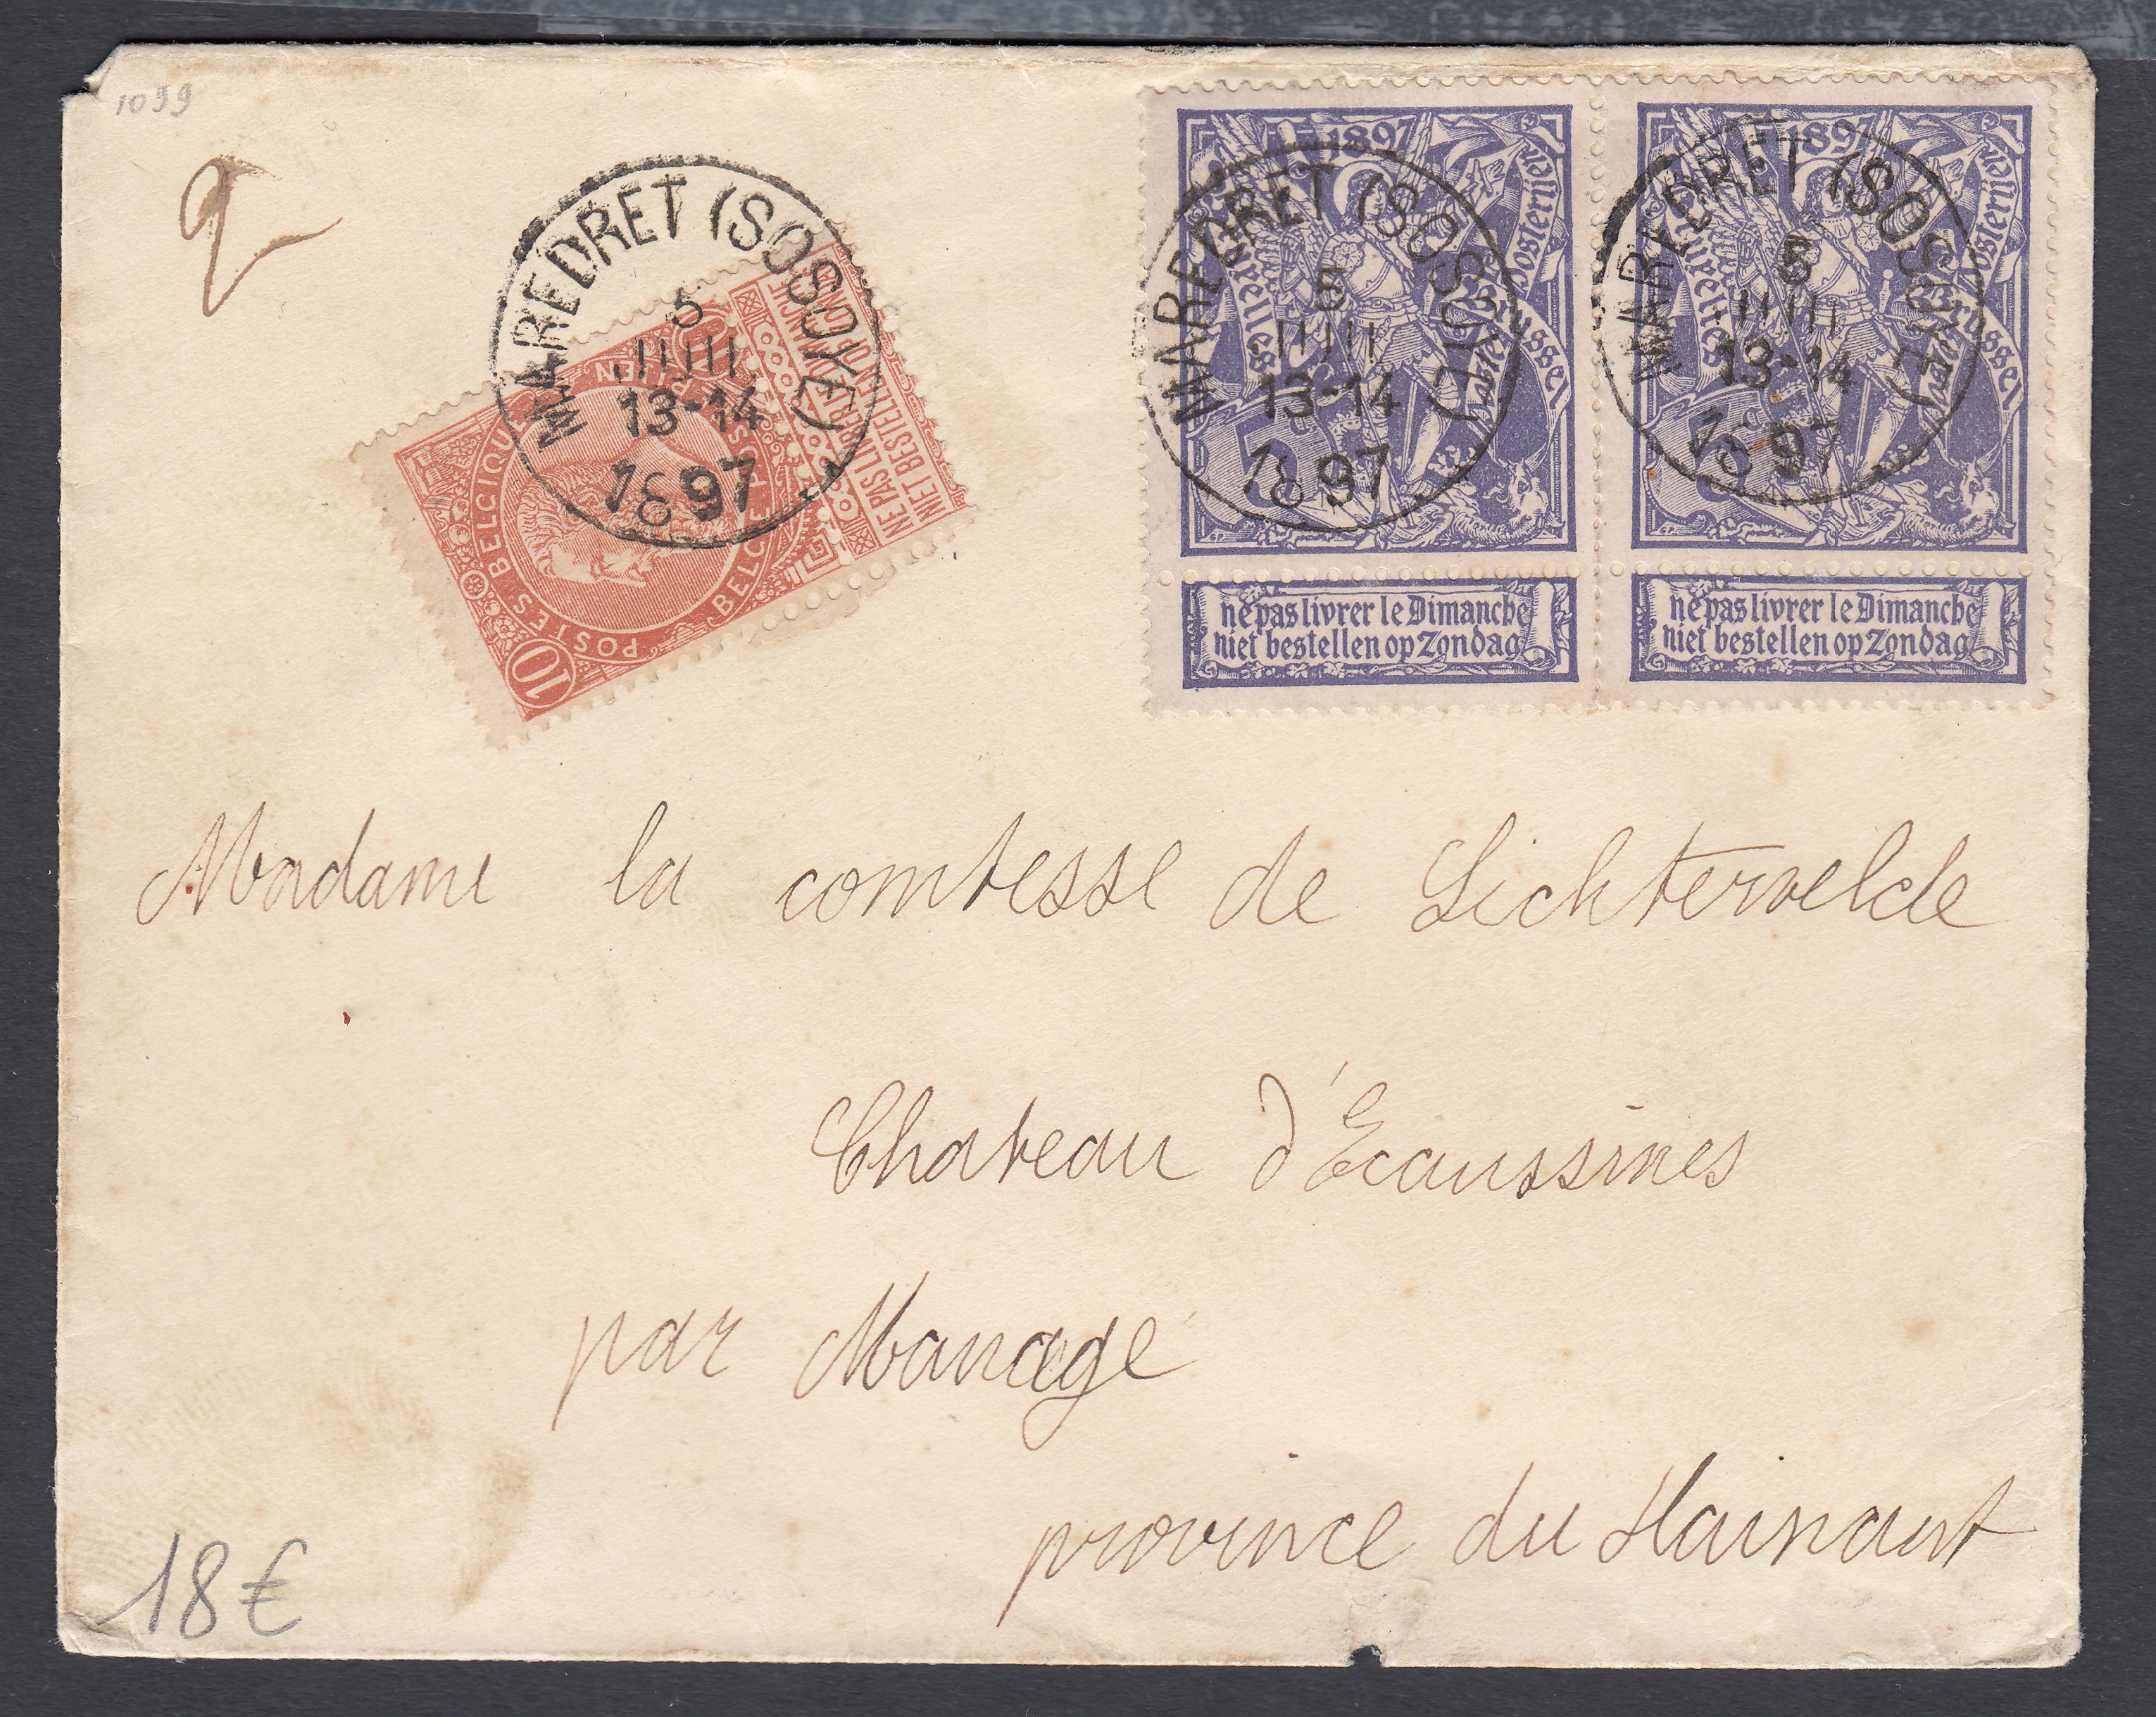 1099
2
MAREDRET (SOSOYE)
5
JUIN
13-14
1897
POSTES BELGIQUE
BELGIE POSTERIJEN
10
NE PAS LIVRER LE DIMANCHE
NIET BESTELLEN OP ZONDAG
1897
Bruxelles
Brussel
Posterijen
5c
MAREDRET (SOSOYE)
5
JUIN
13-14
1897
ne pas livrer le Dimanche
niet bestellen op Zondag
1897
Bruxelles
Brussel
Posterijen
5c
MAREDRET (SOSOYE)
5
JUIN
13-14
1897
ne pas livrer le Dimanche
niet bestellen op Zondag
Madame la comtesse de Lichtervelde
Chateau d'Ecaussines
par Manage
province du Hainaut
18€